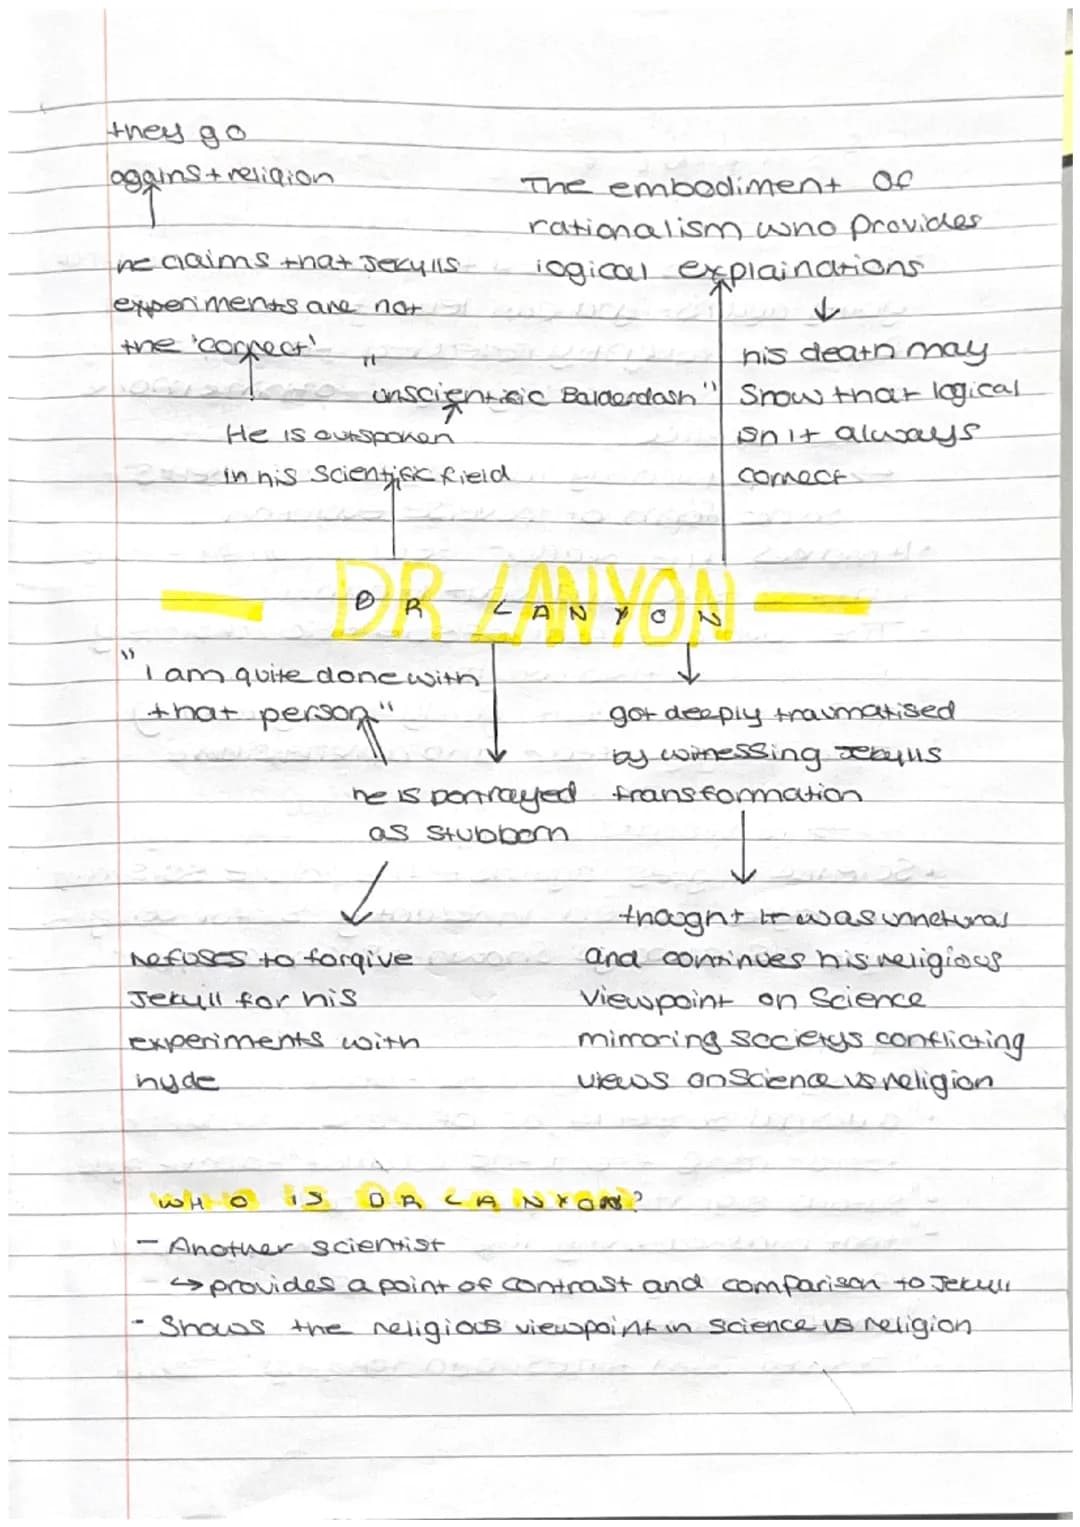 they go
against religion
he claims that Jekylls
experiments are not
the 'correct'
"unscientific Balderdash"
He is outspoken
in his scientific field
The embodiment of
rationalism who provides
logical explainations
his death may
Show that logical
isn it always
correct
DR LANYON
DR LANYON
"I am quite done with
that person"
he is portrayed
as stubborn
Refuses to forgive
Jekyll for his
experiments with
hyde
got deeply traumatised
by witnessing Jekylls
transformation
thought it was unnetural
and continues his religious
viewpoint on Science
mirroring societys conflicting
views on Science vs religion
WHO IS DR LANYON?
- Another scientist
↳ provides a point of contrast and comparison to Jekyll
- Shows the religious viewpoint in science vs religion